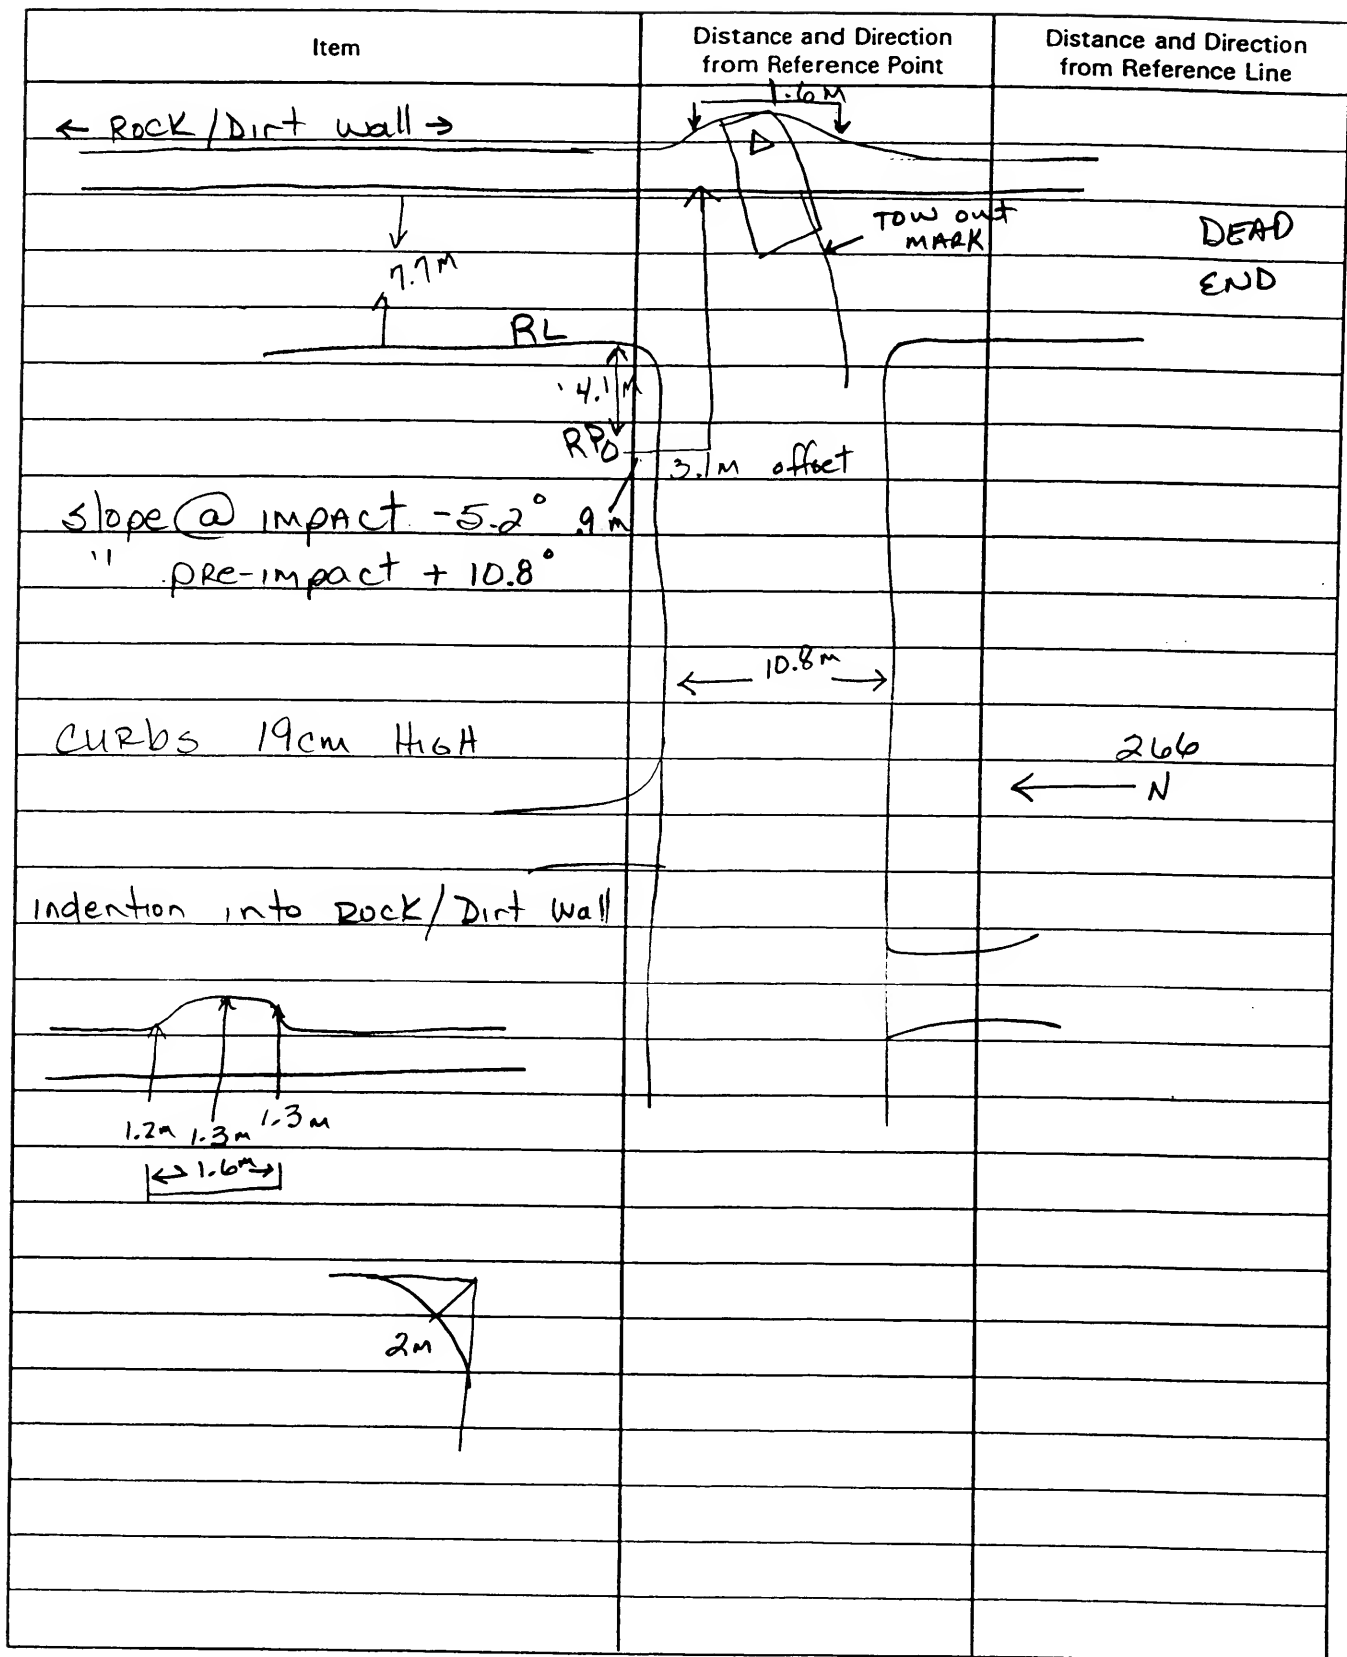 Item
Distance and Direction
from Reference Point
Distance and Direction
from Reference Line
1.6 M
← Rock/Dirt Wall →
D
TOW OUT
MARK
DEAD
END
7.7M
RL
4.1 M
RP
3.1M offset
.9 m
slope @ IMPACT -5.2°
" PRE-IMPACT + 10.8°
10.8 m
CURBS 19cm HIGH
266
← N
Indention into ROCK/Dirt Wall
1.2m 1.3m 1.3m
1.6m
2M